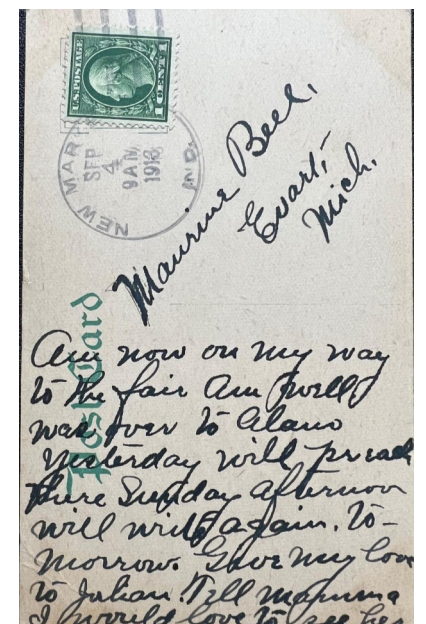 U.S. POSTAGE
1 CENT 1
NEW MAR
IND.
SEP
4
9 AM
1913
Maurine Bell,
Evart,
Mich.
Post Card
Am now on my way
to the fair Am well
was over to Alamo
yesterday will preach
there Sunday afternoon
will write again. To-
morrow. Give my love
to Julian. Tell mamma
I would love to see her